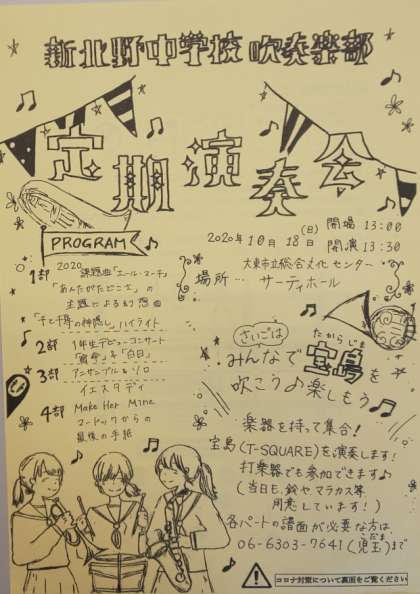 新北野中学校 吹奏楽部
定期演奏会
PROGRAM
1部 2020 課題曲「エール・マーチ」
「あんたがたどこさ」の
主題による幻想曲
「千と千尋の神隠し」ハイライト
2部 1年生デビューコンサート
「宿命」&「白日」
3部 アンサンブル&ソロ
イエスタデイ
4部 Make Her Mine
ヌードックからの
最後の手紙
2020年10月18日(日) 開場 13:00
開演 13:30
場所… 大東市立総合文化センター
サーティホール
さいごは
みんなで宝島を
たからじま
吹こう♪楽しもう♪
楽器を持って集合!
宝島(T-SQUARE)を演奏します!
打楽器でも参加できます♪
(当日も、鈴やマラカス等
用意しています!)
各パートの譜面が必要な方は
06-6303-7641(児玉)まで
こだま
コロナ対策について裏面をご覧ください